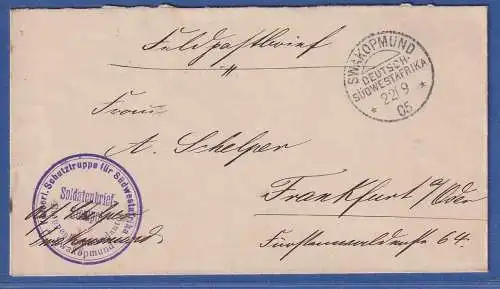 Feldpostbrief
SWAKOPMUND
DEUTSCH-
SÜDWESTAFRIKA
22/9
05
Frau
A. Schelper
Frankfurt a/Oder
Fürstenwalderstr 64.
Kaiserl. Schutztruppe für Südwestafrika
Soldatenbrief
Swakopmund